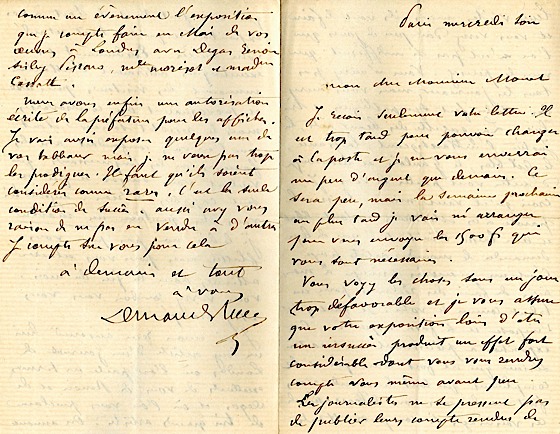 Paris mercredi soir
mon cher Monsieur Monet
Je reçois seulement votre lettre. Il
est trop tard pour pouvoir changer
à la poste et je ne vous enverrai
un peu d'argent que demain. Ce
sera peu, mais la semaine prochaine
au plus tard je vais m'arranger
pour vous envoyer les 1500 f qui
vous sont nécessaires.
Vous voyez les choses sous un jour
trop défavorable et je vous assure
que votre exposition loin d'être
un insuccès produit un effet fort
considérable dont vous vous rendrez
compte vous même avant peu
Les journalistes ne se pressent pas
de publier leurs comptes rendus de
comme un évènement l'exposition
que je compte faire en Mai de vos
œuvres à Londres avec Degas Renoir
Sisley Pissaro, melle morizot et
Cassatt.
Nous avons enfin une autorisation
écrite de la préfecture pour les affiches.
Je vais aussi exposer quelques uns de
vos tableaux mais je ne veux pas trop
les prodiguer. Il faut qu'ils soient
considérés comme rares, c'est la seule
condition de succès. aussi avez vous
raison de ne pas en vendre à d'autres
Je compte sur vous pour cela
à demain et tout
à vous
Durand Ruel